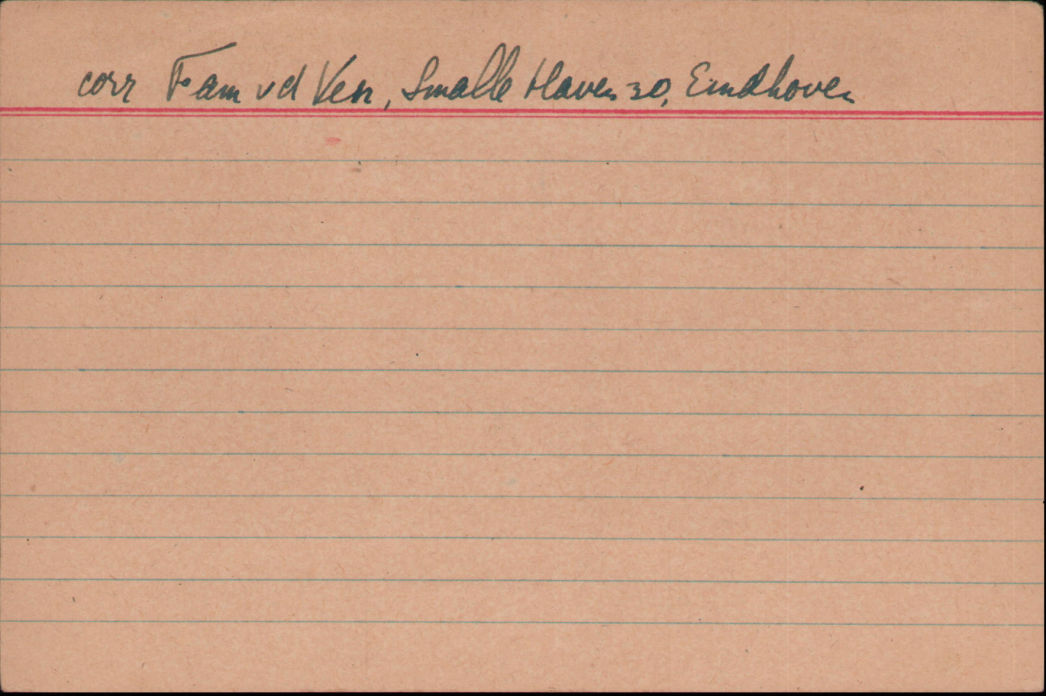 corr Fam vd Ven, Smalle Haven 30, Eindhoven